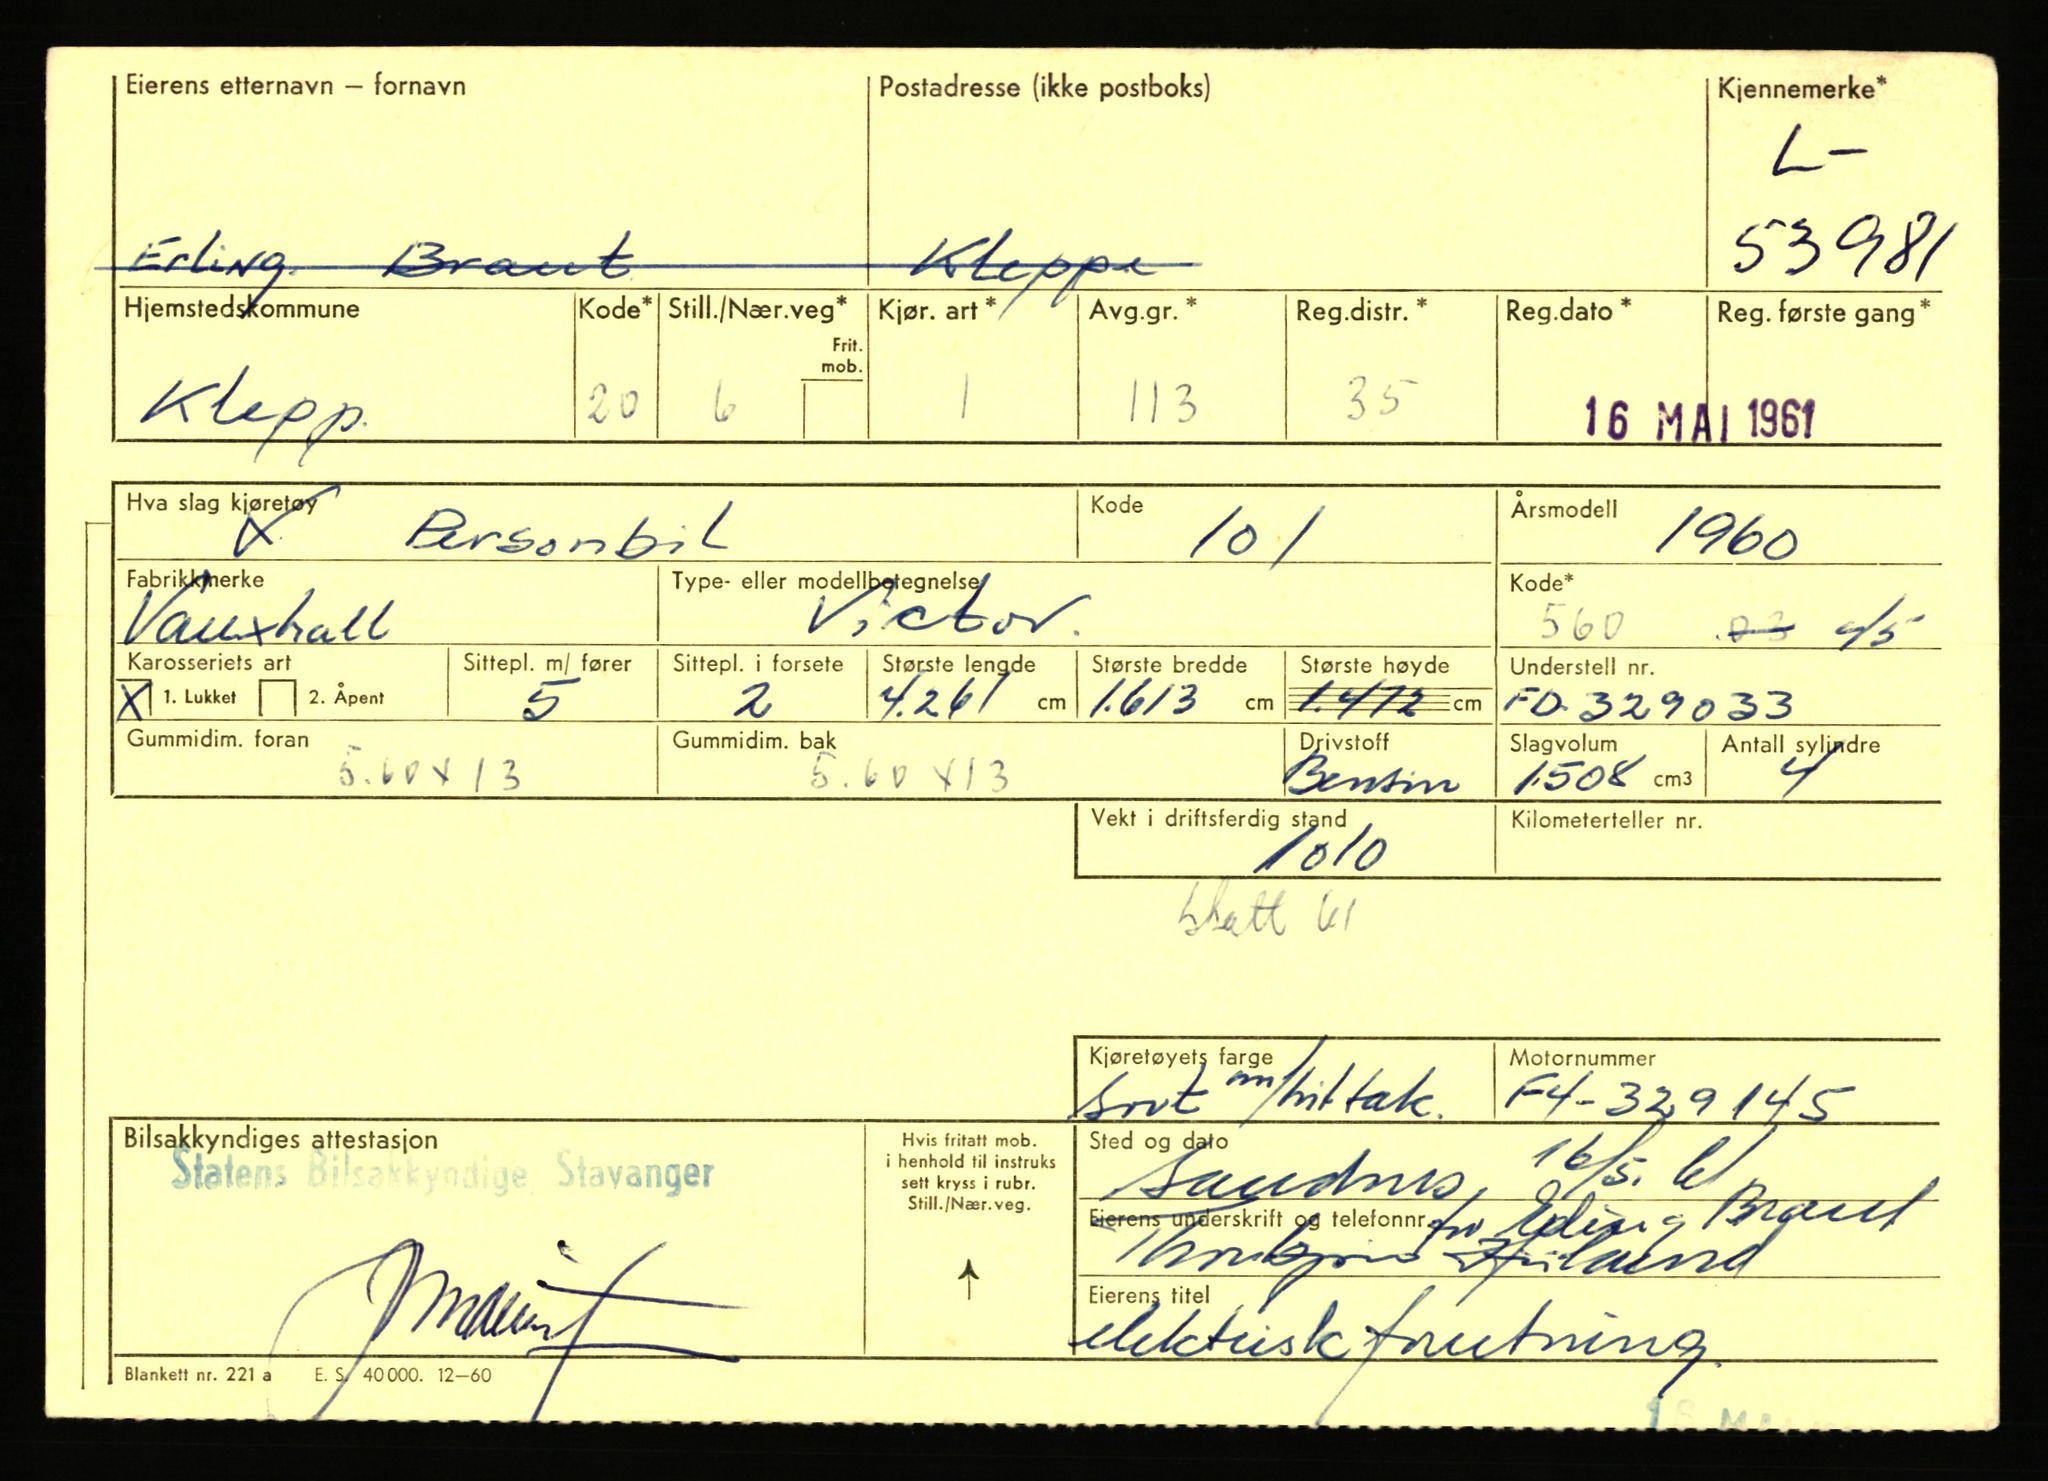 Eierens etternavn – fornavn Postadresse (ikke postboks) Kjennemerke*
L-
53981
Erling Braut Kleppe
Hjemstedskommune Kode* Still./Nær.veg* Kjør. art* Avg.gr.* Reg.distr.* Reg.dato* Reg. første gang*
Frit.
mob.
Klepp. 20 6 1 113 35 16 MAI 1961
Hva slag kjøretøy Kode Årsmodell
X Personbil 101 1960
Fabrikkmerke Type- eller modellbetegnelse Kode*
Vauxhall Victor. 560
Karosseriets art Sittepl. m/ fører Sittepl. i forsete Største lengde Største bredde Største høyde Understell nr.
X 1. Lukket 2. Åpent 5 2 4.261 cm 1.613 cm 1.472 cm FD.329033
Gummidim. foran Gummidim. bak Drivstoff Slagvolum Antall sylindre
5.60 x 13 5.60 x 13 Bensin 1.508 cm3 4
Vekt i driftsferdig stand Kilometerteller nr.
1010
skatt 61
Kjøretøyets farge Motornummer
sort m/hvit tak. F4-329145
Bilsakkyndiges attestasjon Hvis fritatt mob. Sted og dato
i henhold til instruks
sett kryss i rubr.
Still./Nær.veg.
Statens Bilsakkyndige Stavanger Sandnes, 16/5. 61
Eierens underskrift og telefonnr. for Erling Braut
Eierens titel
elektrisk forretning.
Blankett nr. 221 a E. S. 40 000. 12–60